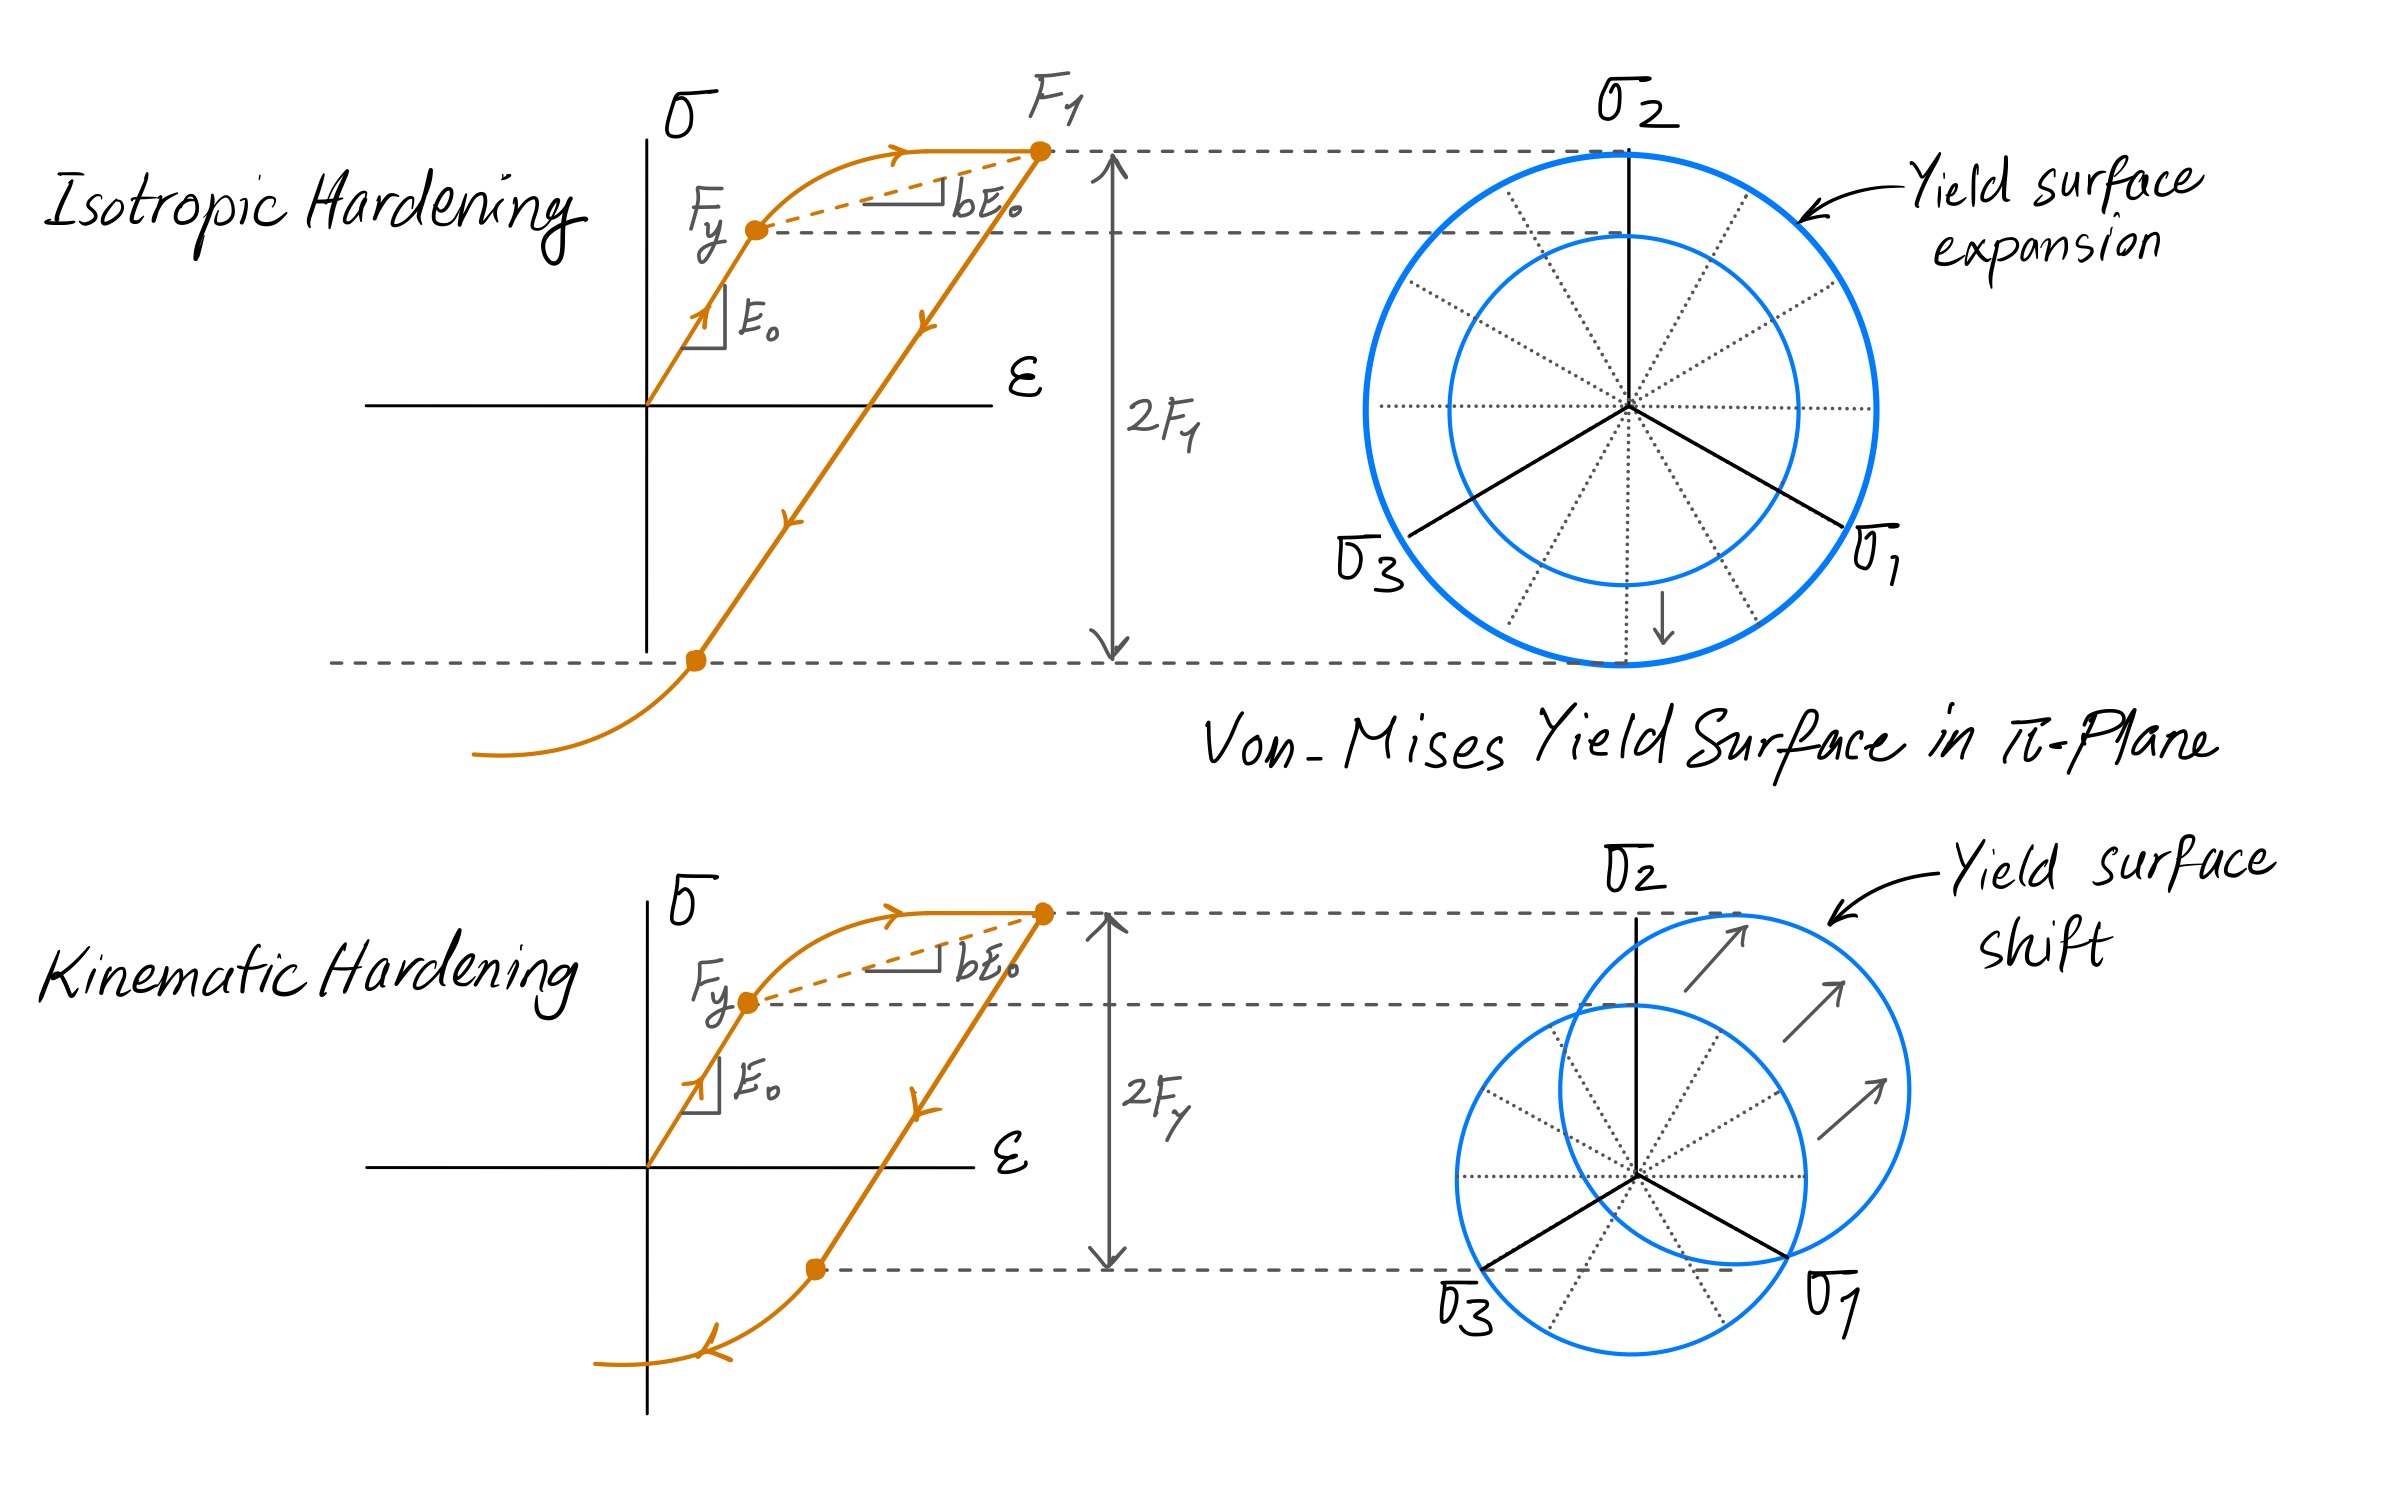 Isotropic Hardening
σ
F1
Fy
bE0
E0
ε
2F1
σ2
σ3
σ1
Yield surface
expansion
Von-Mises Yield Surface in π-Plane
Kinematic Hardening
σ
Fy
bE0
E0
ε
2Fy
σ2
σ3
σ1
Yield surface
shift